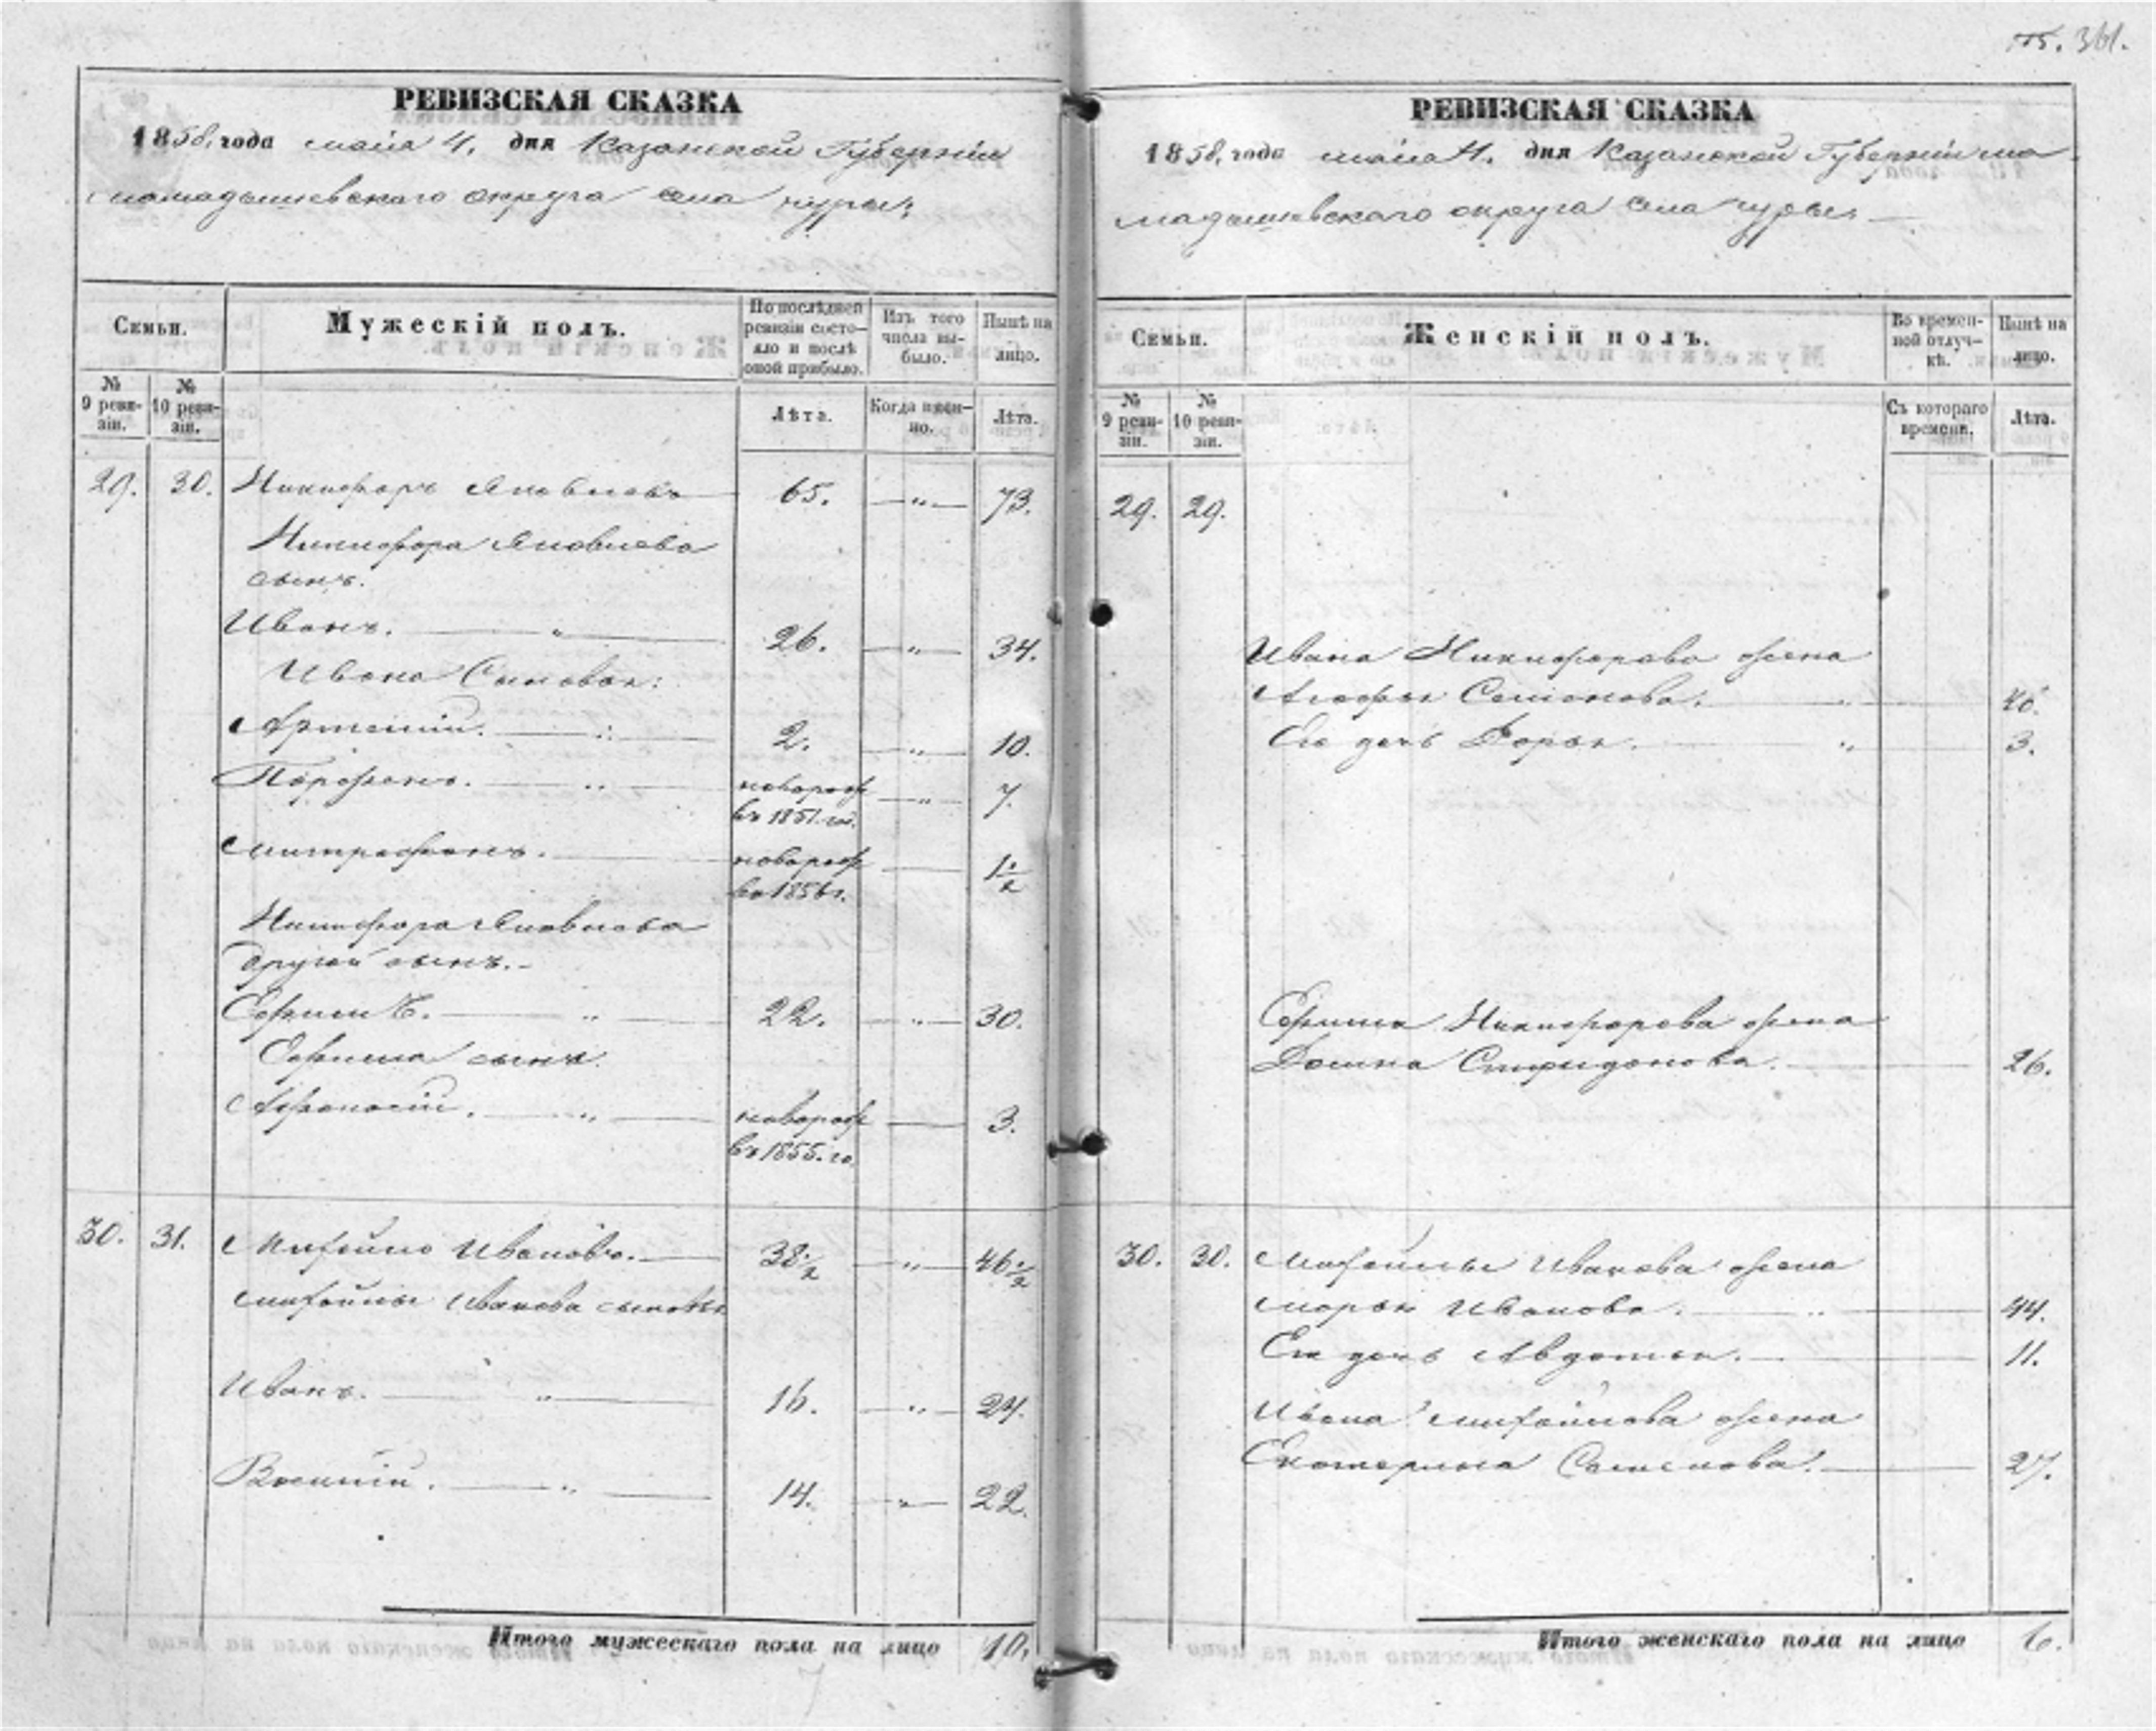 361.
РЕВИЗСКАЯ СКАЗКА
1858, года маія 4, дня Казанской Губерніи
мамадышевскаго округа села
Семьи.
Мужескій полъ.
По послѣдней ревизіи состояло и послѣ оной прибыло.
Изъ того числа выбыло.
Нынѣ на лицо.
№ 9 ревизіи.
№ 10 ревизіи.
Лѣта.
Когда именно.
Лѣта.
29. 30. Никифоръ Яковлевъ 65. —„— 73.
Никифора Яковлева
сынъ.
Иванъ. — „ — 26. —„— 34.
Ивана Сыновья:
Артемій. — „ — 2. —„— 10.
Парфенъ. — „ — новорож —„— 7.
въ 1851. год.
Митрофанъ. — новорож — 1½
въ 1856 г.
Никифора Яковлева
другой сынъ. –
Ефимъ. — „ — 22. —„— 30.
Ефима сынъ.
Афонасій. — „ — новорож — 3.
въ 1855. го.
30. 31. Михайло Ивановъ. — 38½ —„— 46½
Михайлы Иванова сыновья
Иванъ. — „ — 16. —„— 24.
Василій. — „ — 14. —„— 22.
Итого мужескаго пола на лицо 10.
РЕВИЗСКАЯ СКАЗКА
1858, года маія 4. дня Казанской Губерніи ма-
мадышевскаго округа села
Семьи.
Женскій полъ.
Во временной отлучкѣ.
Нынѣ на лицо.
№ 9 ревизіи.
№ 10 ревизіи.
Съ котораго времени.
Лѣта.
29. 29.
Ивана Никифорова жена
Семенова. — „ —
Его дочь Дарья. — „ — 3.
Ефима Никифорова жена
Домна Спиридонова. — 26.
30. 30. Михайлы Иванова жена
Марья Иванова. — „ — 44.
Его дочь Авдотья. — 11.
Ивана Михайлова жена
Екатерина Семенова. — 27.
Итого женскаго пола на лицо 6.